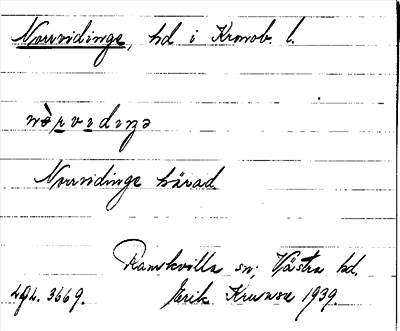 Norrvidinge, hd i Kronob. l.
nò̱rvidiŋə
Norrvidinge härad
Ramkvilla sn, Västra hd.
Lgl. 3669. Erik Krusse 1939.